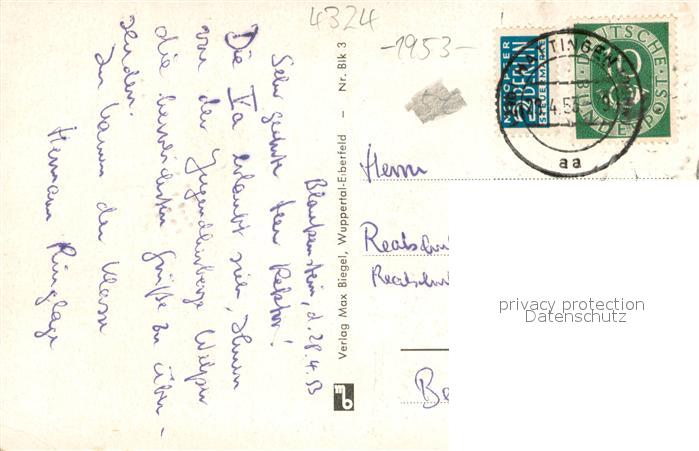 4324
-1953-
Blankenstein, d. 28.4.53
Sehr geehrter Herr Rektor!
Die Va erlaubt sich, Ihnen
von der Jugendherberge Welper
die herzlichsten Grüße zu über-
senden.
Im Namen der Klasse
Hermann Ringlage
Verlag Max Biegel, Wuppertal-Elberfeld – Nr. Blk 3
mb
NOTOPFER
2 BERLIN
STEUERMARKE
DEUTSCHE
BUNDESPOST
HATTINGEN
4.53
aa
Herrn
Realschul
Realschul
Be
privacy protection
Datenschutz